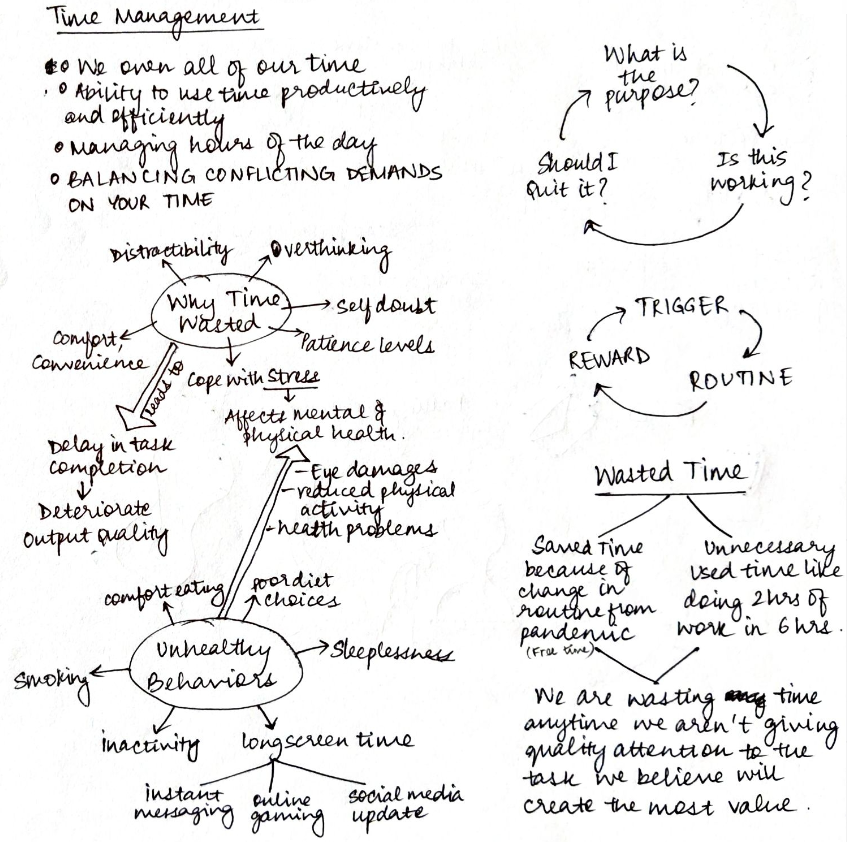 Time Management
We own all of our time
Ability to use time productively
and efficiently
Managing hours of the day
BALANCING CONFLICTING DEMANDS
ON YOUR TIME
Distractibility
Overthinking
Why Time
Wasted
Self doubt
Patience levels
Comfort,
Convenience
leads to
Cope with Stress
Affects mental &
physical health.
Delay in task
completion
Deteriorate
Output quality
- Eye damages
- reduced physical
activity
- health problems
comfort eating
poor diet
choices
Unhealthy
Behaviors
Sleeplessness
Smoking
inactivity
long screen time
instant
messaging
online
gaming
social media
update
What is
the
purpose?
Is this
working?
Should I
Quit it?
TRIGGER
ROUTINE
REWARD
Wasted Time
Saved Time
because of
change in
routine from
pandemic
(Free time)
Unnecessary
Used time like
doing 2hrs of
work in 6 hrs.
We are wasting time
anytime we aren't giving
quality attention to the
task we believe will
create the most value.